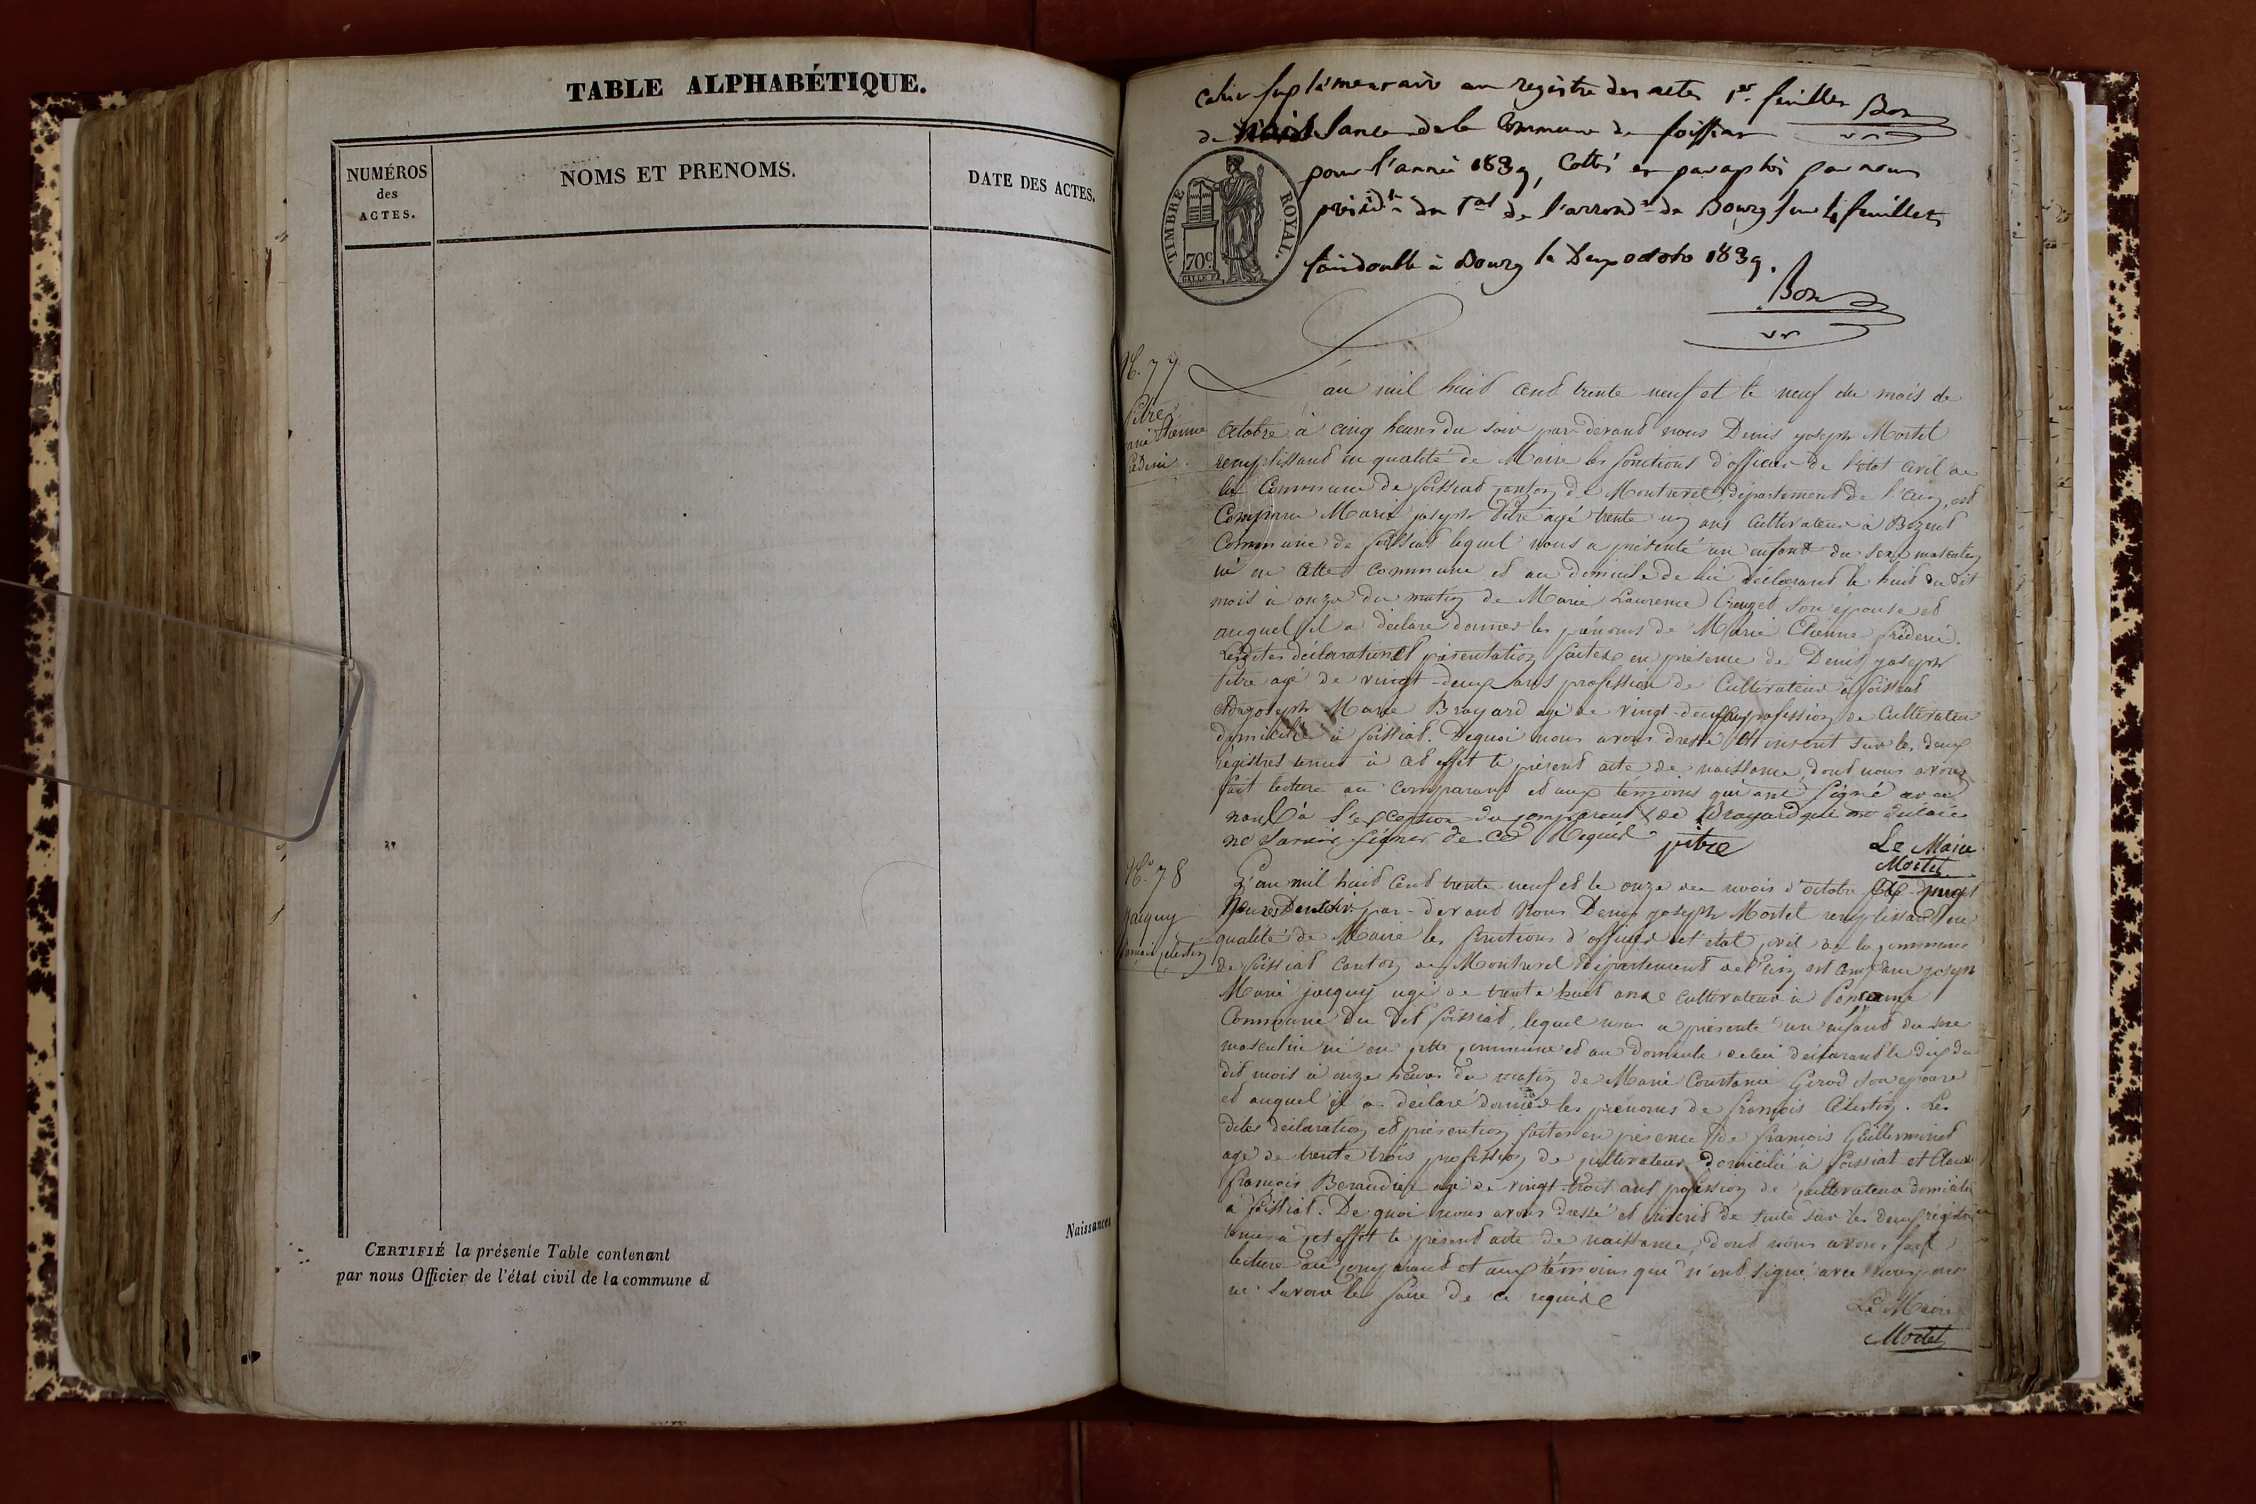 TABLE ALPHABÉTIQUE.
NUMÉROS
des
ACTES.
NOMS ET PRENOMS.
DATE DES ACTES.
CERTIFIÉ la présente Table contenant
par nous Officier de l'état civil de la commune d
Naissances
Cahier suplémentaire au registre des actes 1er feuillet Bon
de naissance de la Commune de foissiat
pour l'année 1839, Cotté et paraphé par nous
présidt du Tal de l'arrondt de Bourg sur 4 feuillets
fait double à Bourg le Deux octobre 1839.
Bon
TIMBRE ROYAL.
70c
N°. 77
Pitre
marie Etienne
L'an mil huit cent trente neuf et le neuf du mois de
Octobre à cinq heures du soir par devant nous Denis joseph Mortel
remplissant en qualité de Maire les fonctions d'officier de l'état civil de
la Commune de foissiat canton de Montrevel département de l'ain, est
Comparu Marie joseph Pitre agé trente un ans Cultivateur à Bezent
Commune de foissiat lequel nous a présenté un enfant du sexe masculin
né en cette Commune et au domicile de lui déclarant le huit du dit
mois à onze du matin de Marie Laurence Creuzet son épouse et
auquel il a déclaré donner les prénoms de Marie Etienne fréderic.
Lesdites déclaration et présentation faites en présence de Denis joseph
Pitre agé de vingt-deux ans profession de Cultivateur à foissiat
et de joseph Marie Brayard agé de vingt-deux ans profession de Cultivateur
domicilié à foissiat. De quoi nous avons dressé et inscrit sur les deux
régistres tenus à cet effet le présent acte de naissance, dont nous avons
fait lecture au Comparant et aux témoins qui ont signé avec
nous à l'exception du comparant & de Brayard qui ont déclaré
ne savoir signer de ce Requis pitre
Le Maire
Mortel
N°. 78
jacquy
francois celestin
L'an mil huit cent trente neuf et le onze du mois d'octobre
heures du soir par-devant Nous Denis joseph Mortel remplissant en
qualité de Maire les fonctions d'officier de l'état civil de la commune
de foissiat Canton de Montrevel département de l'ain est comparu joseph
Marie jacquy agé de trente huit ans cultivateur à
Commune du dit foissiat, lequel nous a présenté un enfant du sexe
masculin né en cette commune et au domicile de lui déclarant le dix du
dit mois à onze heures du matin de Marie Constance Girod son épouse
et auquel il a déclaré donner les prénoms de françois Célestin. Les
dites déclaration et présention faites en présence de françois Guillerminet
agé de trente trois profession de cultivateur domicilié à foissiat et Claude
françois Beraudier agé de vingt-trois ans profession de cultivateur domicilié
à foissiat. De quoi nous avons dressé et inscrit de suite sur les deux régistres
tenus à cet effet le présent acte de naissance, dont nous avons fait
lecture au comparant et aux témoins qui n'ont signé avec nous pour
ne savoir les faire de ce requis
Le Maire
Mortel